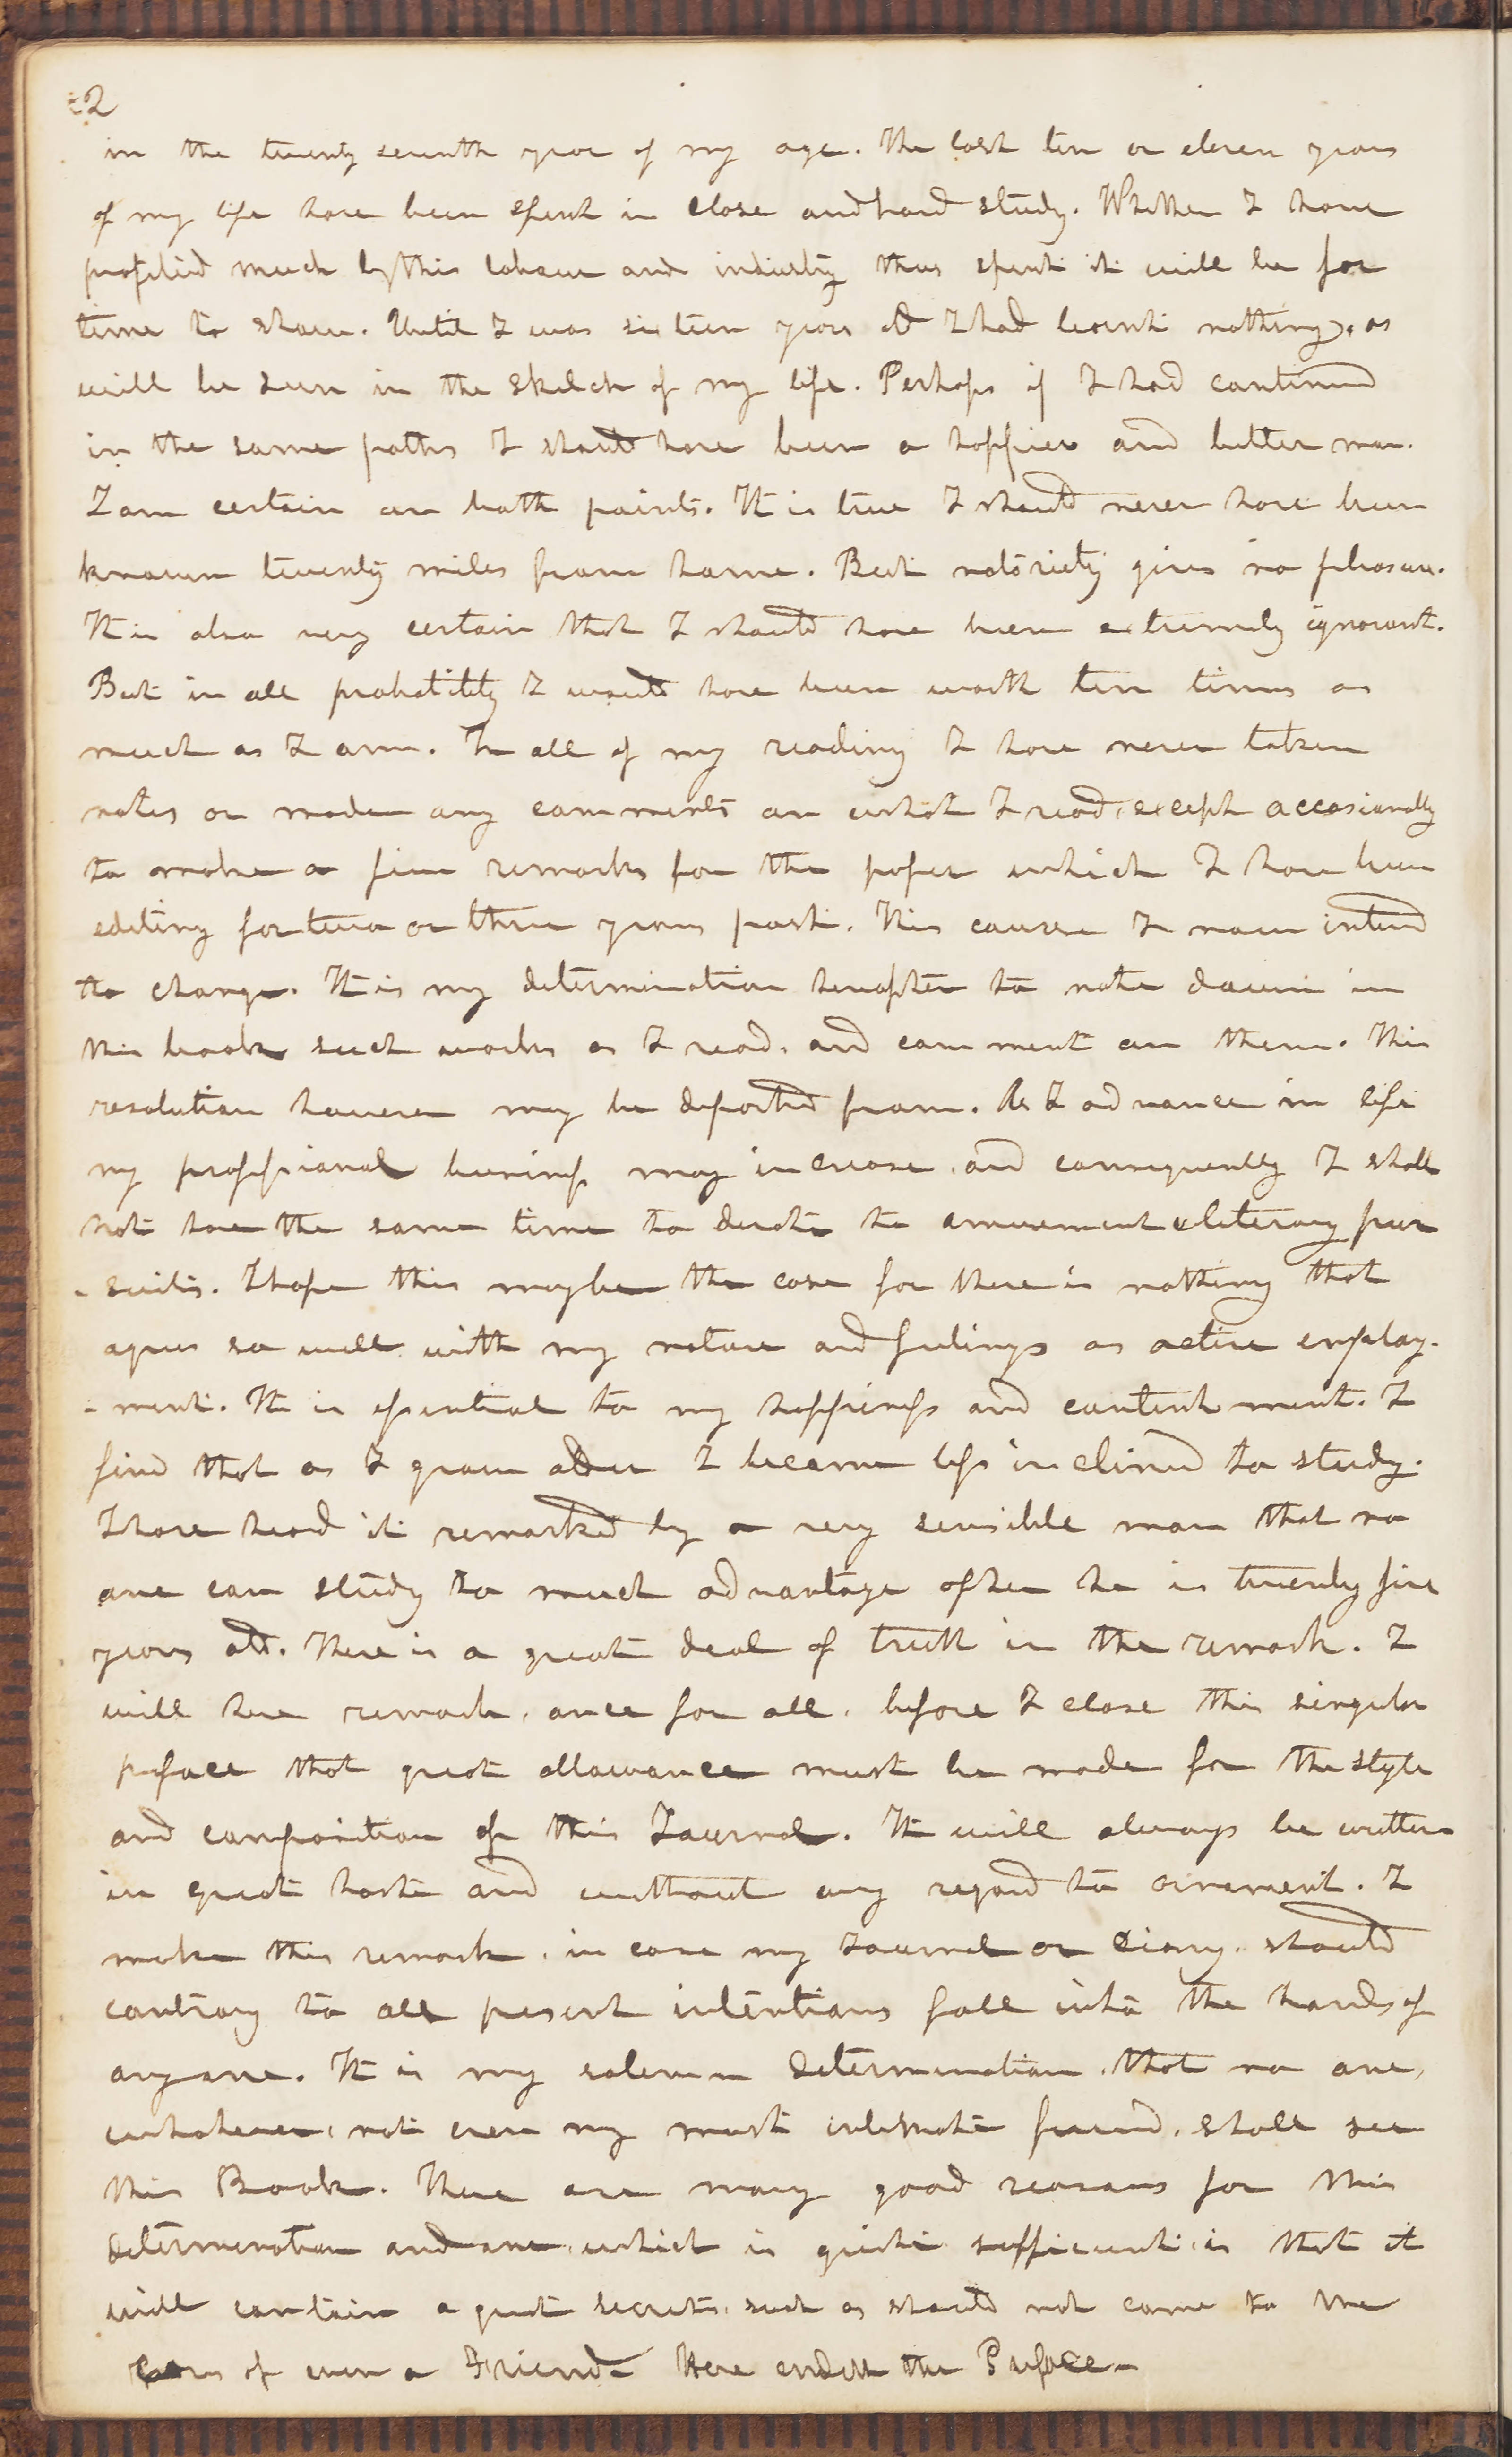 2
in the twenty seventh year of my age. The last ten or eleven years
of my life have been spent in close and hard study. Whether I have
profited much by this labour and industry thus spent it will be for
time to show. Until I was sixteen years old I had learnt nothing, as
will be seen in the sketch of my life. Perhaps if I had continued
in the same paths I should have been a happier and better man.
I am certain on both points. It is true I should never have been
known twenty miles from home. But notoriety gives no pleasure.
It is also very certain that I should have been extremely ignorant.
But in all probability I would have been worth ten times as
much as I am. In all of my reading I have never taken
notes or made any comments on what I read, except occasionally
to make a few remarks for the paper which I have been
editing for two or three years past. This course I now intend
to change. It is my determination hereafter to note down in
this book such works as I read, and comment on them. This
resolution however may be departed from. As I advance in life
my professional business may increase, and consequently I shall
not have the same time to devote to amusement & literary pur
-suits. I hope this maybe the case for there is nothing that
agrees so well with my nature and feelings as active employ-
-ment. It is essential to my happiness and contentment. I
find that as I grow older I become less inclined to study.
I have heard it remarked by a very sensible man that no
one can study to much advantage after he is twenty five
years old. There is a great deal of truth in the remark. I
will here remark, once for all, before I close this singular
preface that great allowance must be made for the style
and composition of this Journal. It will always be written
in great haste and without any regard to ornament. I
make this remark, in case my Journal or Diary, should
contrary to all present intentions fall into the hands of
anyone. It is my solemn determination, that no one,
whatever, not even my most intimate friend, shall see
this Book. There are many good reasons for this
determination and one, which is quite sufficient, is that it
will contain a great secrets, such as should not come to the
ears of even a Friend. Here endeth the Preface.